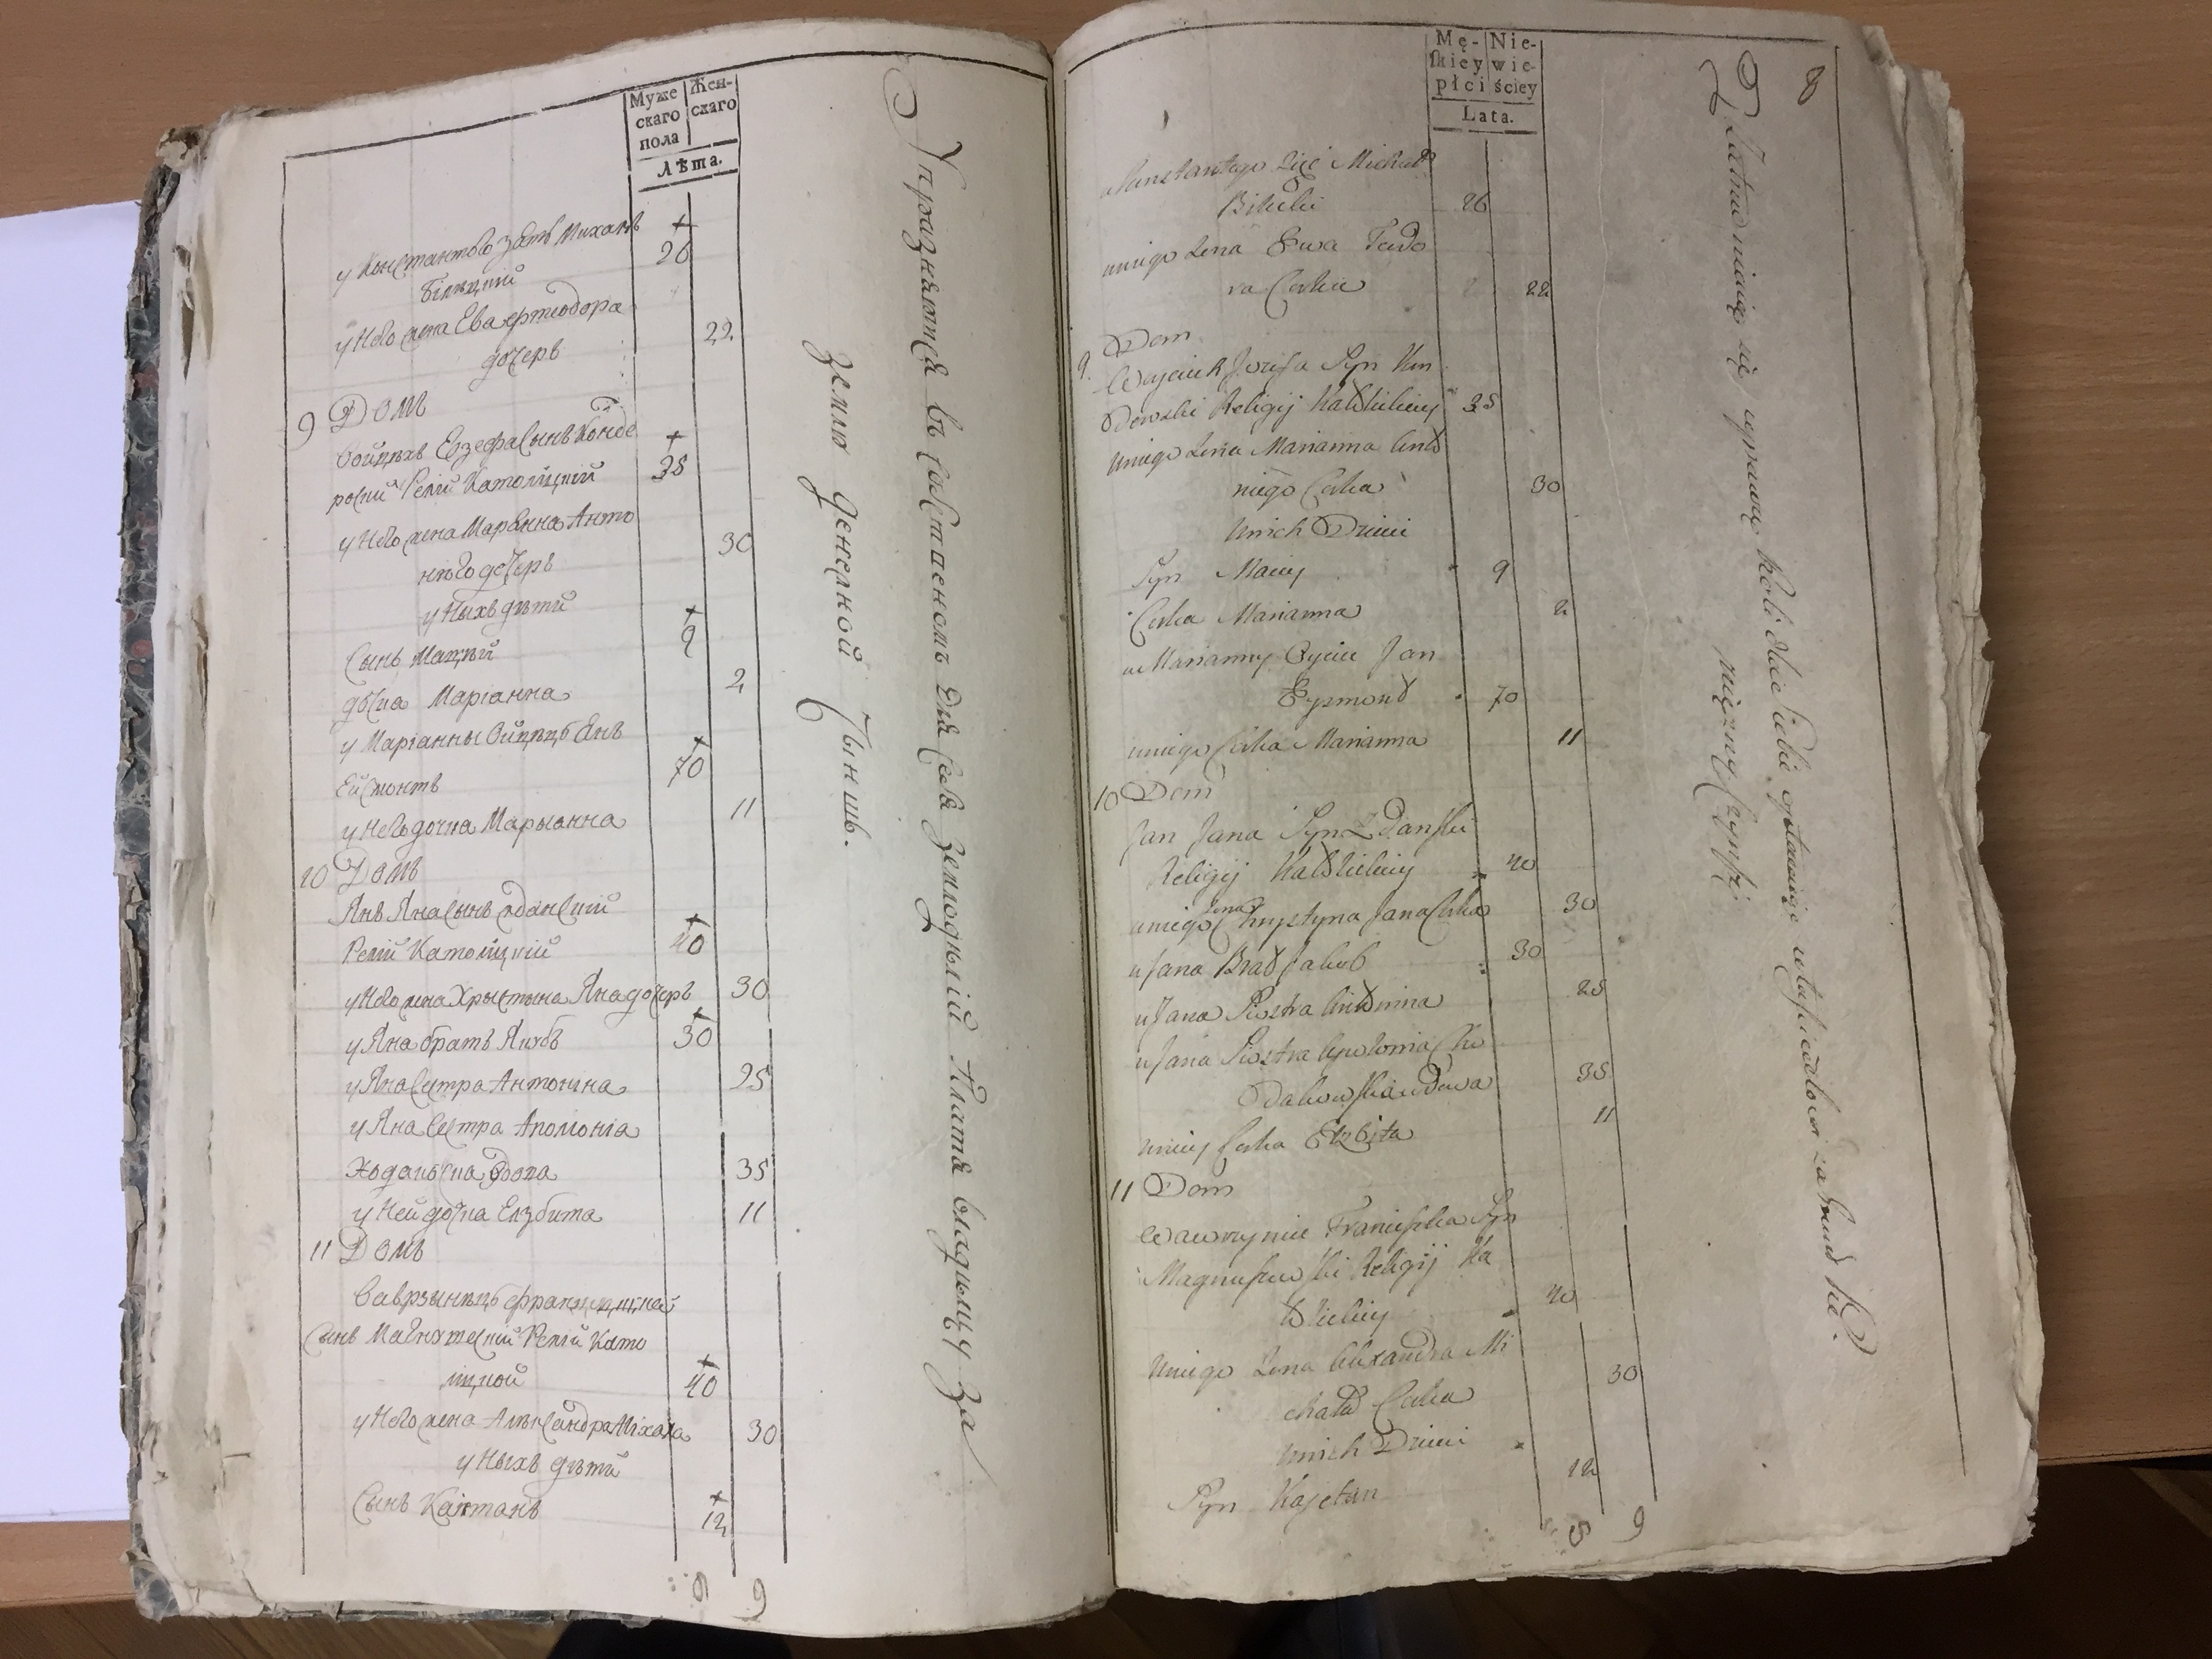 Муже
скаго
пола
Жен-
скаго
Лѣта.
у Константого зять Михалъ +
Білецкій 26
у Него жена Ева Фтеодора
дочерь 22
9 Домъ
Войцехъ Езефа Сынъ Конде +
ровскій Релій Католицкій 35
у Него жена Маріанна Анто
нѣго дочерь 30
у Ныхъ дѣти
Сынъ Мацѣй + 9
дочка Маріанна 2
у Маріанны Ойцецъ Янъ +
Ейсмонтъ 70
у Него дочка Марыанна 11
10 Домъ
Янъ Яна Сынъ Зданскій
Релій Католицкій + 40
у Него жена Хрыстына Яна дочерь 30
у Яна братъ Якубъ + 30
у Яна Сестра Антоніна 25
у Яна Сестра Аполонія
Ходаковска Вдова 35
у Ней дочка Елзбита 11
11 Домъ
Ваврзынецъ Францишка
Сынъ Магнушескій Релій Като
лицкой + 40
у Него жена Александра Міхала 30
у Ныхъ дѣти
Сынъ Каятанъ + 12
9 9
Упразняются въ Собственомъ для Себя Земподеліи Платя Владельцу За
Землю Денежной Чыншъ.
8
Mę-
skiey
płci
Nie-
wie-
ściey
Lata.
u Konstantego Zięć Michał
Bilecki 26
uniego Zena Ewa Teodo
ra Corka 22
9. Dom
Woyciech Jozefa Syn Kon
derowski Religij Katolickiey 35
uniego Zena Marianna Anto
niego Corka 30
unich Dzieci
Syn Maciey 9
Corka Marianna 2
u Marianny Oyciec Jan
Eysmont 70
uniego Corka Marianna 11
10 Dom
Jan Jana Syn Zdanski
Religij Katolickiey 40
uniego Zena Chrystyna Jana Corka 30
u Jana Brat Jakub 30
u Jana Siostra Antonina 25
u Jana Siostra Apolonia Cho
dakowska Wdowa 35
uniey Corka Elzbieta 11
11 Dom
Wawrzyniec Franciszka Syn
Magnuszewski Religij Ka
tolickiey 40
uniego Zena Alexandra Mi
chała Corka 30
unich Dzieci
Syn Kajetan 12
9 9
Zatrudniaią się uprawą Roli dla Siebie opłacaiąc właścicielowi za Grunt
pieniężny Czynsz